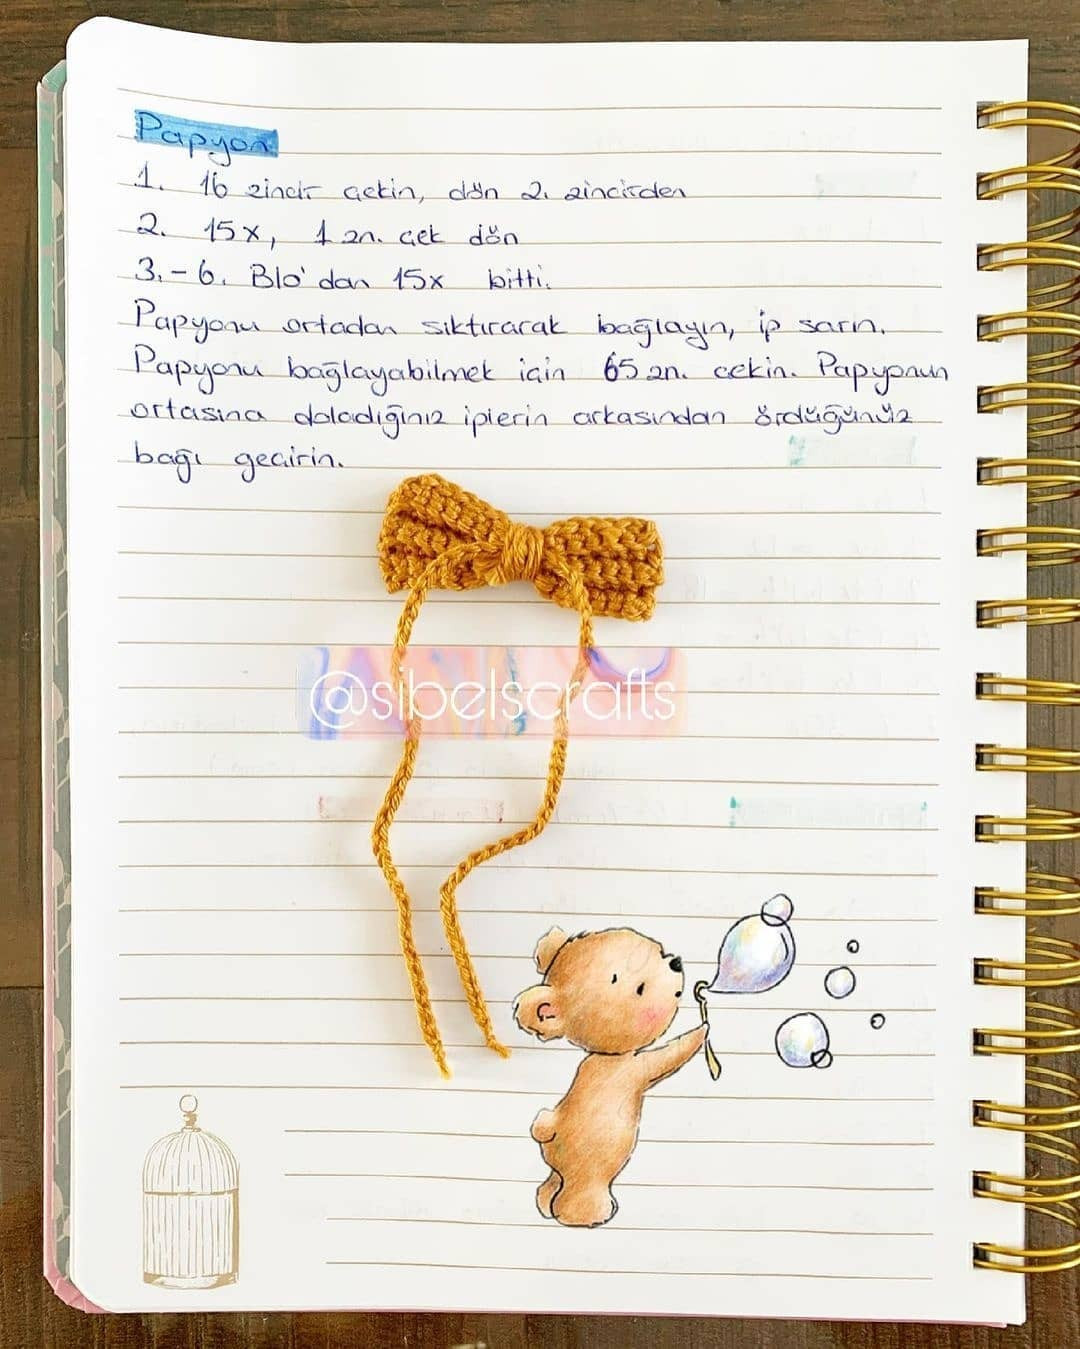 Papyon
1. 16 zincir çekin, dön 2. zincirden
2. 15x, 1 zn. çek dön
3.-6. Blo'dan 15x bitti.
Papyonu ortadan sıktırarak bağlayın, ip sarın.
Papyonu bağlayabilmek için 65 zn. çekin. Papyonun
ortasına doladığınız iplerin arkasından ördüğünüz
bağı geçirin.
@sibelscrafts